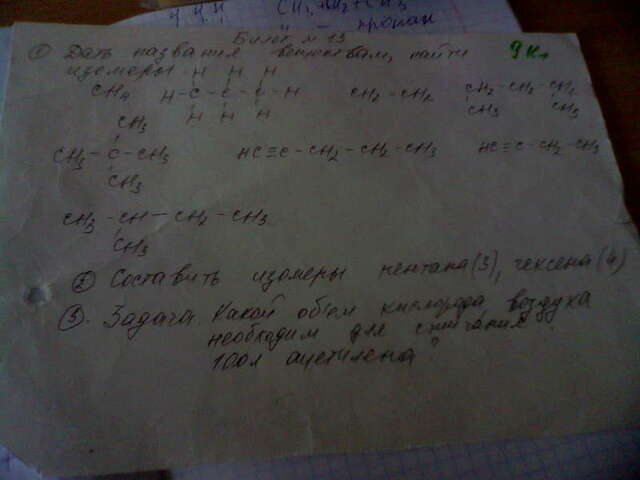 CH3-CH2-CH3
пропан
Билет №13
① Дать названия веществам, найти 9 кл
изомеры
H H H
CH4 H-C-C-C-H CH2-CH2 CH2-CH2-CH2
H H H CH3 CH3
CH3
CH3-C-CH3 HC≡C-CH2-CH2-CH3 HC≡C-CH2-CH3
CH3
CH3-CH-CH2-CH3
CH3
② Составить изомеры пентана(3), гексена(4)
③. Задача. Какой объем кислорода воздуха
необходим для сжигания
100л ацетилена?